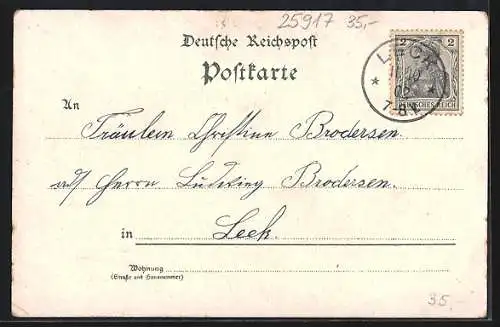 25917 35,-
Deutsche Reichspost
Postkarte
2 2
DEUTSCHES REICH
LECK
02
7-8 V.
An
Fräulein Christine Brodersen.
Herrn Ludwig Brodersen.
in Leck.
Wohnung
(Straße und Hausnummer)
35,-